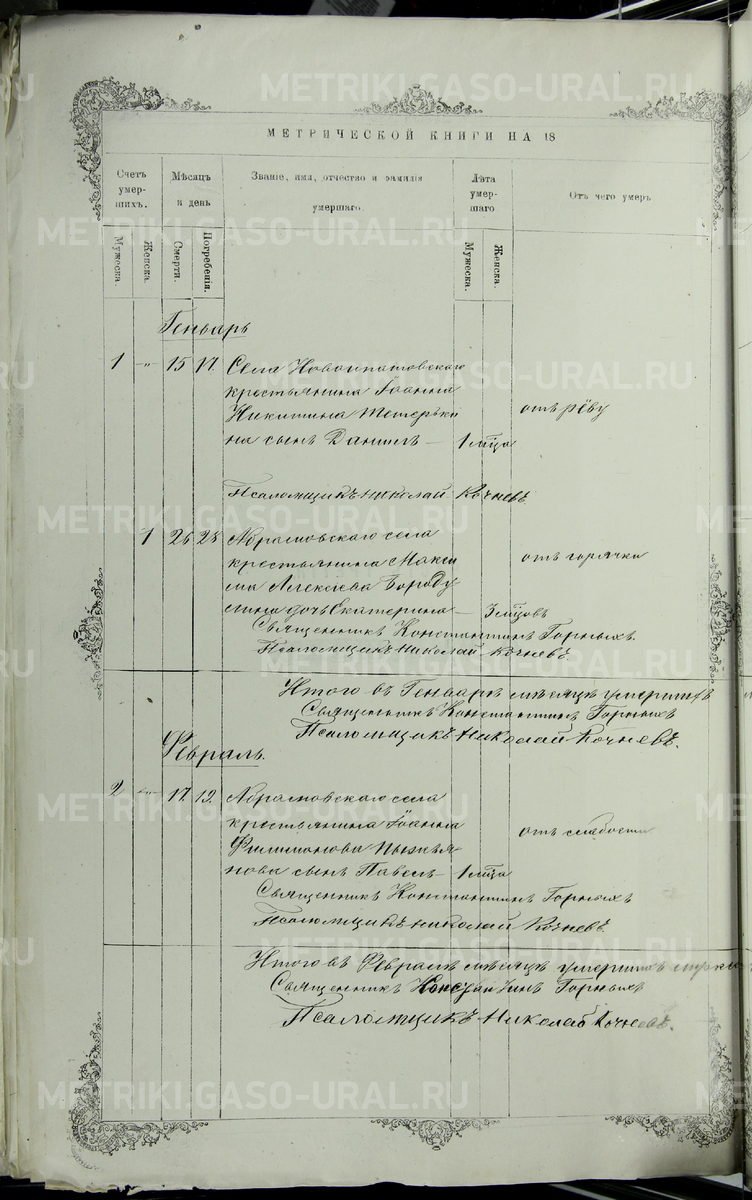 METRIKI.GASO-URAL.RU
МЕТРИЧЕСКОЙ КНИГИ НА 18
Счетъ умершихъ.
Мѣсяцъ и день
Званіе, имя, отчество и фамилія умершаго.
Лѣта умершаго
Отъ чего умеръ
Мужеска.
Женска.
Смерти.
Погребенія.
Мужеска.
Женска.
Геньварь
1 " 15 17. Села Новоипатовскаго
крестьянина Іоанна
Никитина Тетерьки
отъ рёву
на сынъ Данiилъ — 1 м̃ца
Псаломщикъ Николай Кочневъ.
1 26 28 Абрамовскаго села
крестьянина Макси
отъ горячки
ма Алексіева Бороду
лина дочь Екатерина — 3 м̃цовъ
Священникъ Константинъ Горныхъ.
Псаломщикъ Николай Кочневъ.
Итого въ Генварѣ мѣсяцѣ умершихъ
Священникъ Константинъ Горныхъ
Псаломщикъ Николай Кочневъ.
Февраль.
2 " 17. 19. Абрамовскаго села
крестьянина Іоанна
отъ слабости
Филимонова Пыжья
нова сынъ Павелъ — 1 м̃ца
Священникъ Константинъ Горныхъ
Псаломщикъ Николай Кочневъ.
Итого въ Февралѣ мѣсяцѣ умершихъ
Священникъ Константинъ Горныхъ
Псаломщикъ Николай Кочневъ.